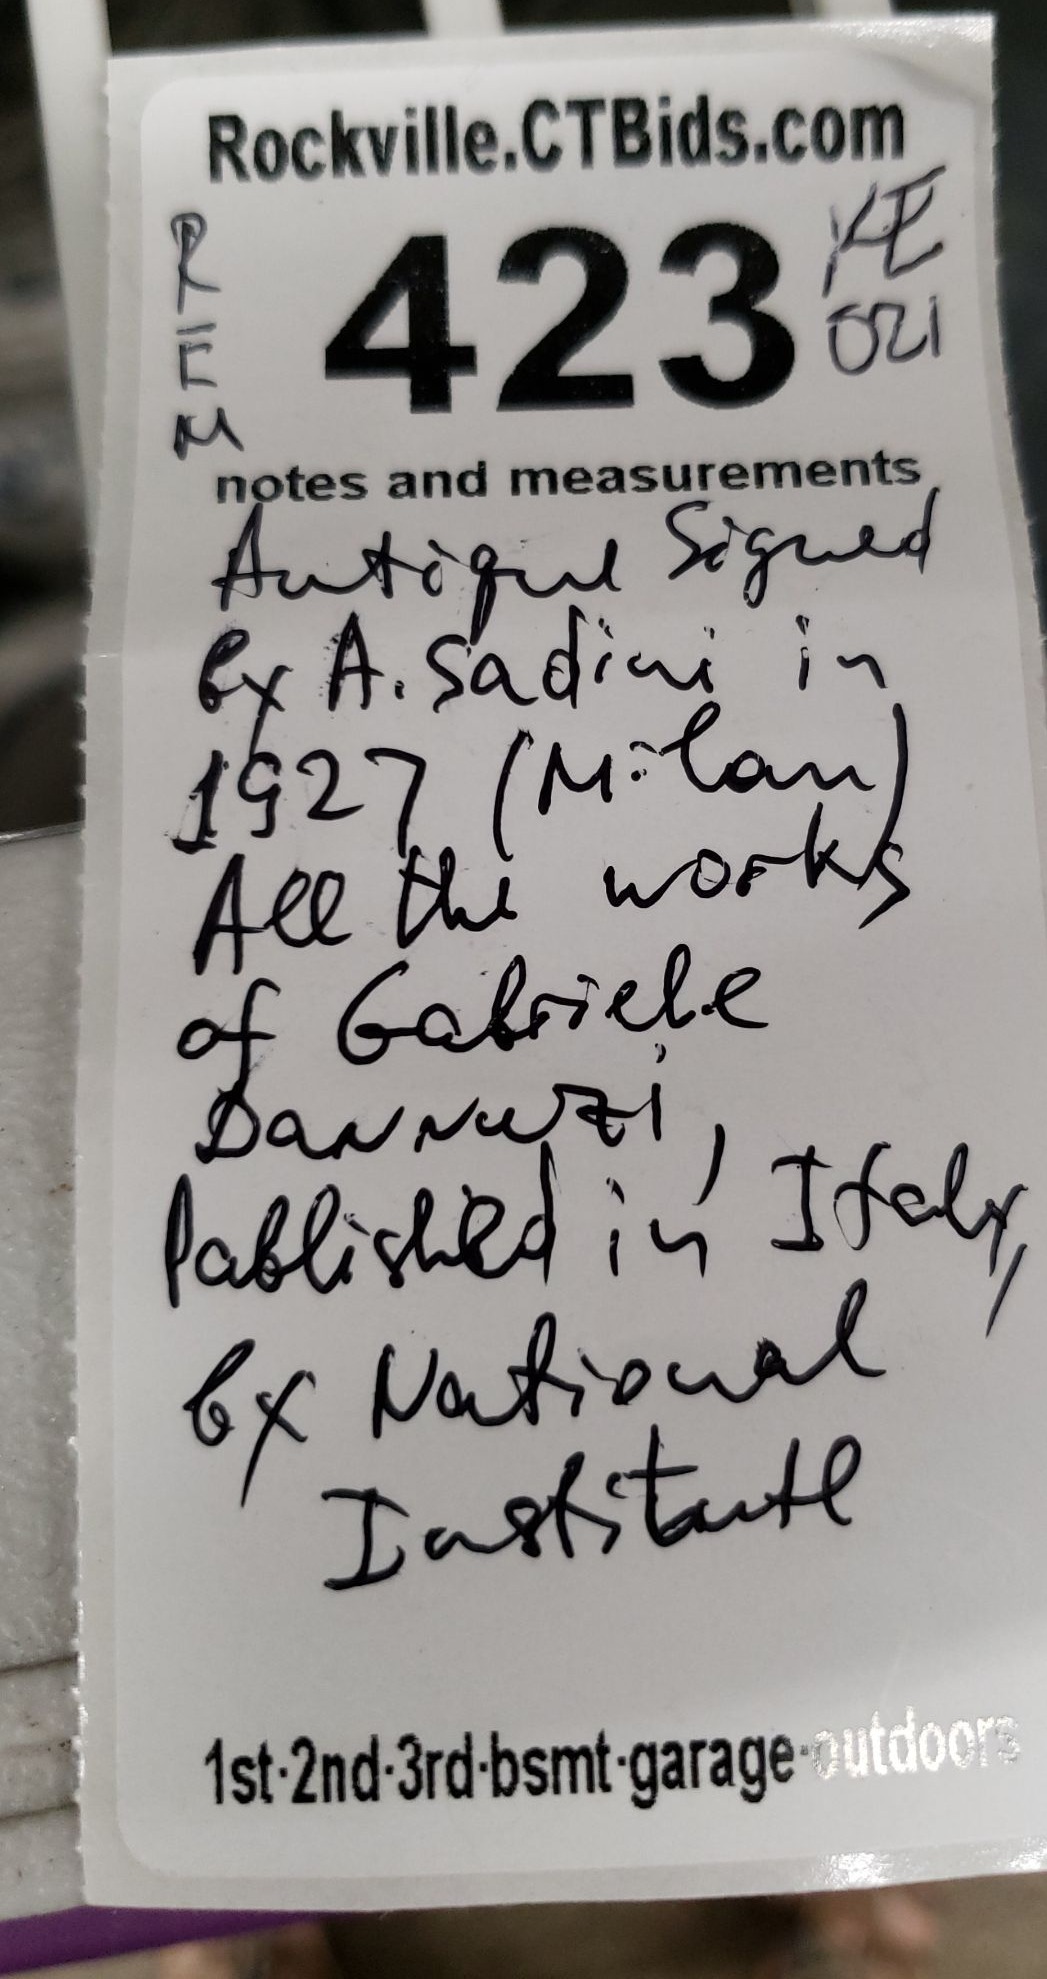 Rockville.CTBids.com
REM
423
KE
OZI
notes and measurements
Antique Signed
by A. Sadini in
1927 (Milan)
All the works
of Gabriele
Dannuzi,
Published in Italy,
by National
Institute
1st·2nd·3rd·bsmt·garage·outdoors